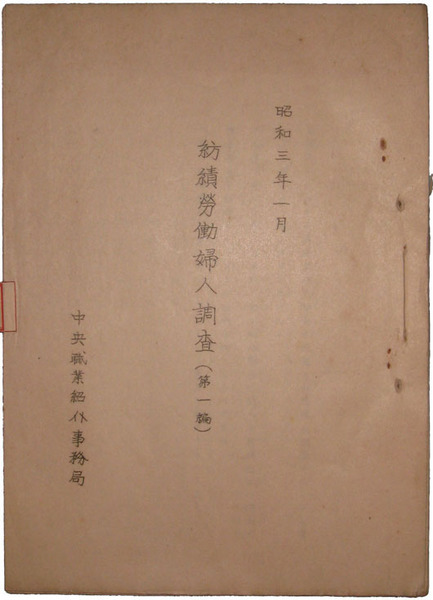 昭和三年一月
紡績勞働婦人調查(第一編)
中央職業紹介事務局